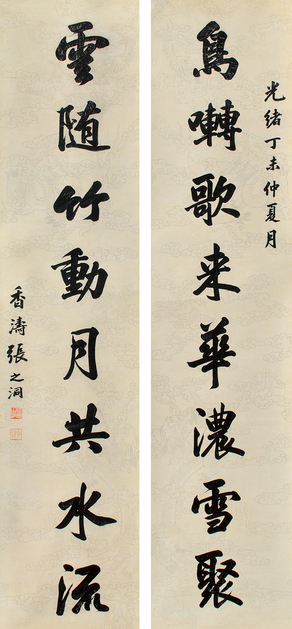 光緒丁未仲夏月
鳥囀歌来華濃雪聚
雲随竹動月共水流
香濤張之洞